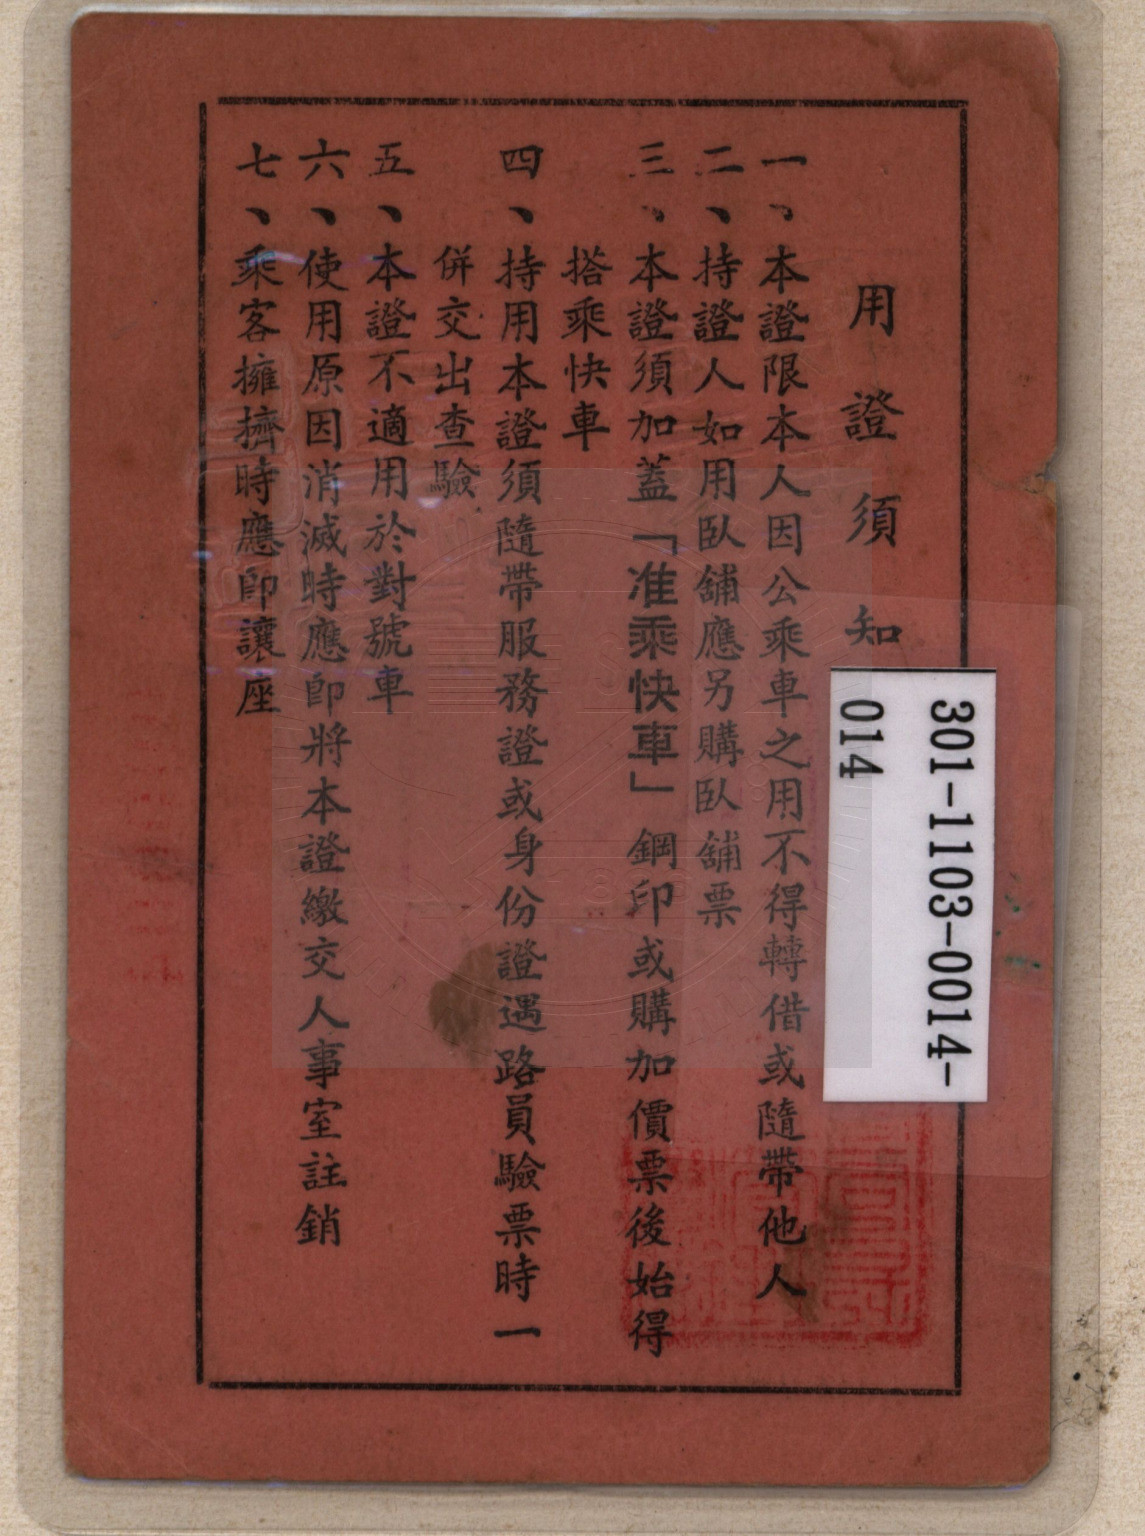 用證須知
一、本證限本人因公乘車之用不得轉借或隨帶他人
二、持證人如用臥舖應另購臥舖票
三、本證須加蓋「准乘快車」鋼印或購加價票後始得
搭乘快車
四、持用本證須隨帶服務證或身份證遇路員驗票時一
併交出查驗
五、本證不適用於對號車
六、使用原因消滅時應卽將本證繳交人事室註銷
七、乘客擁擠時應卽讓座
301-1103-0014-
014